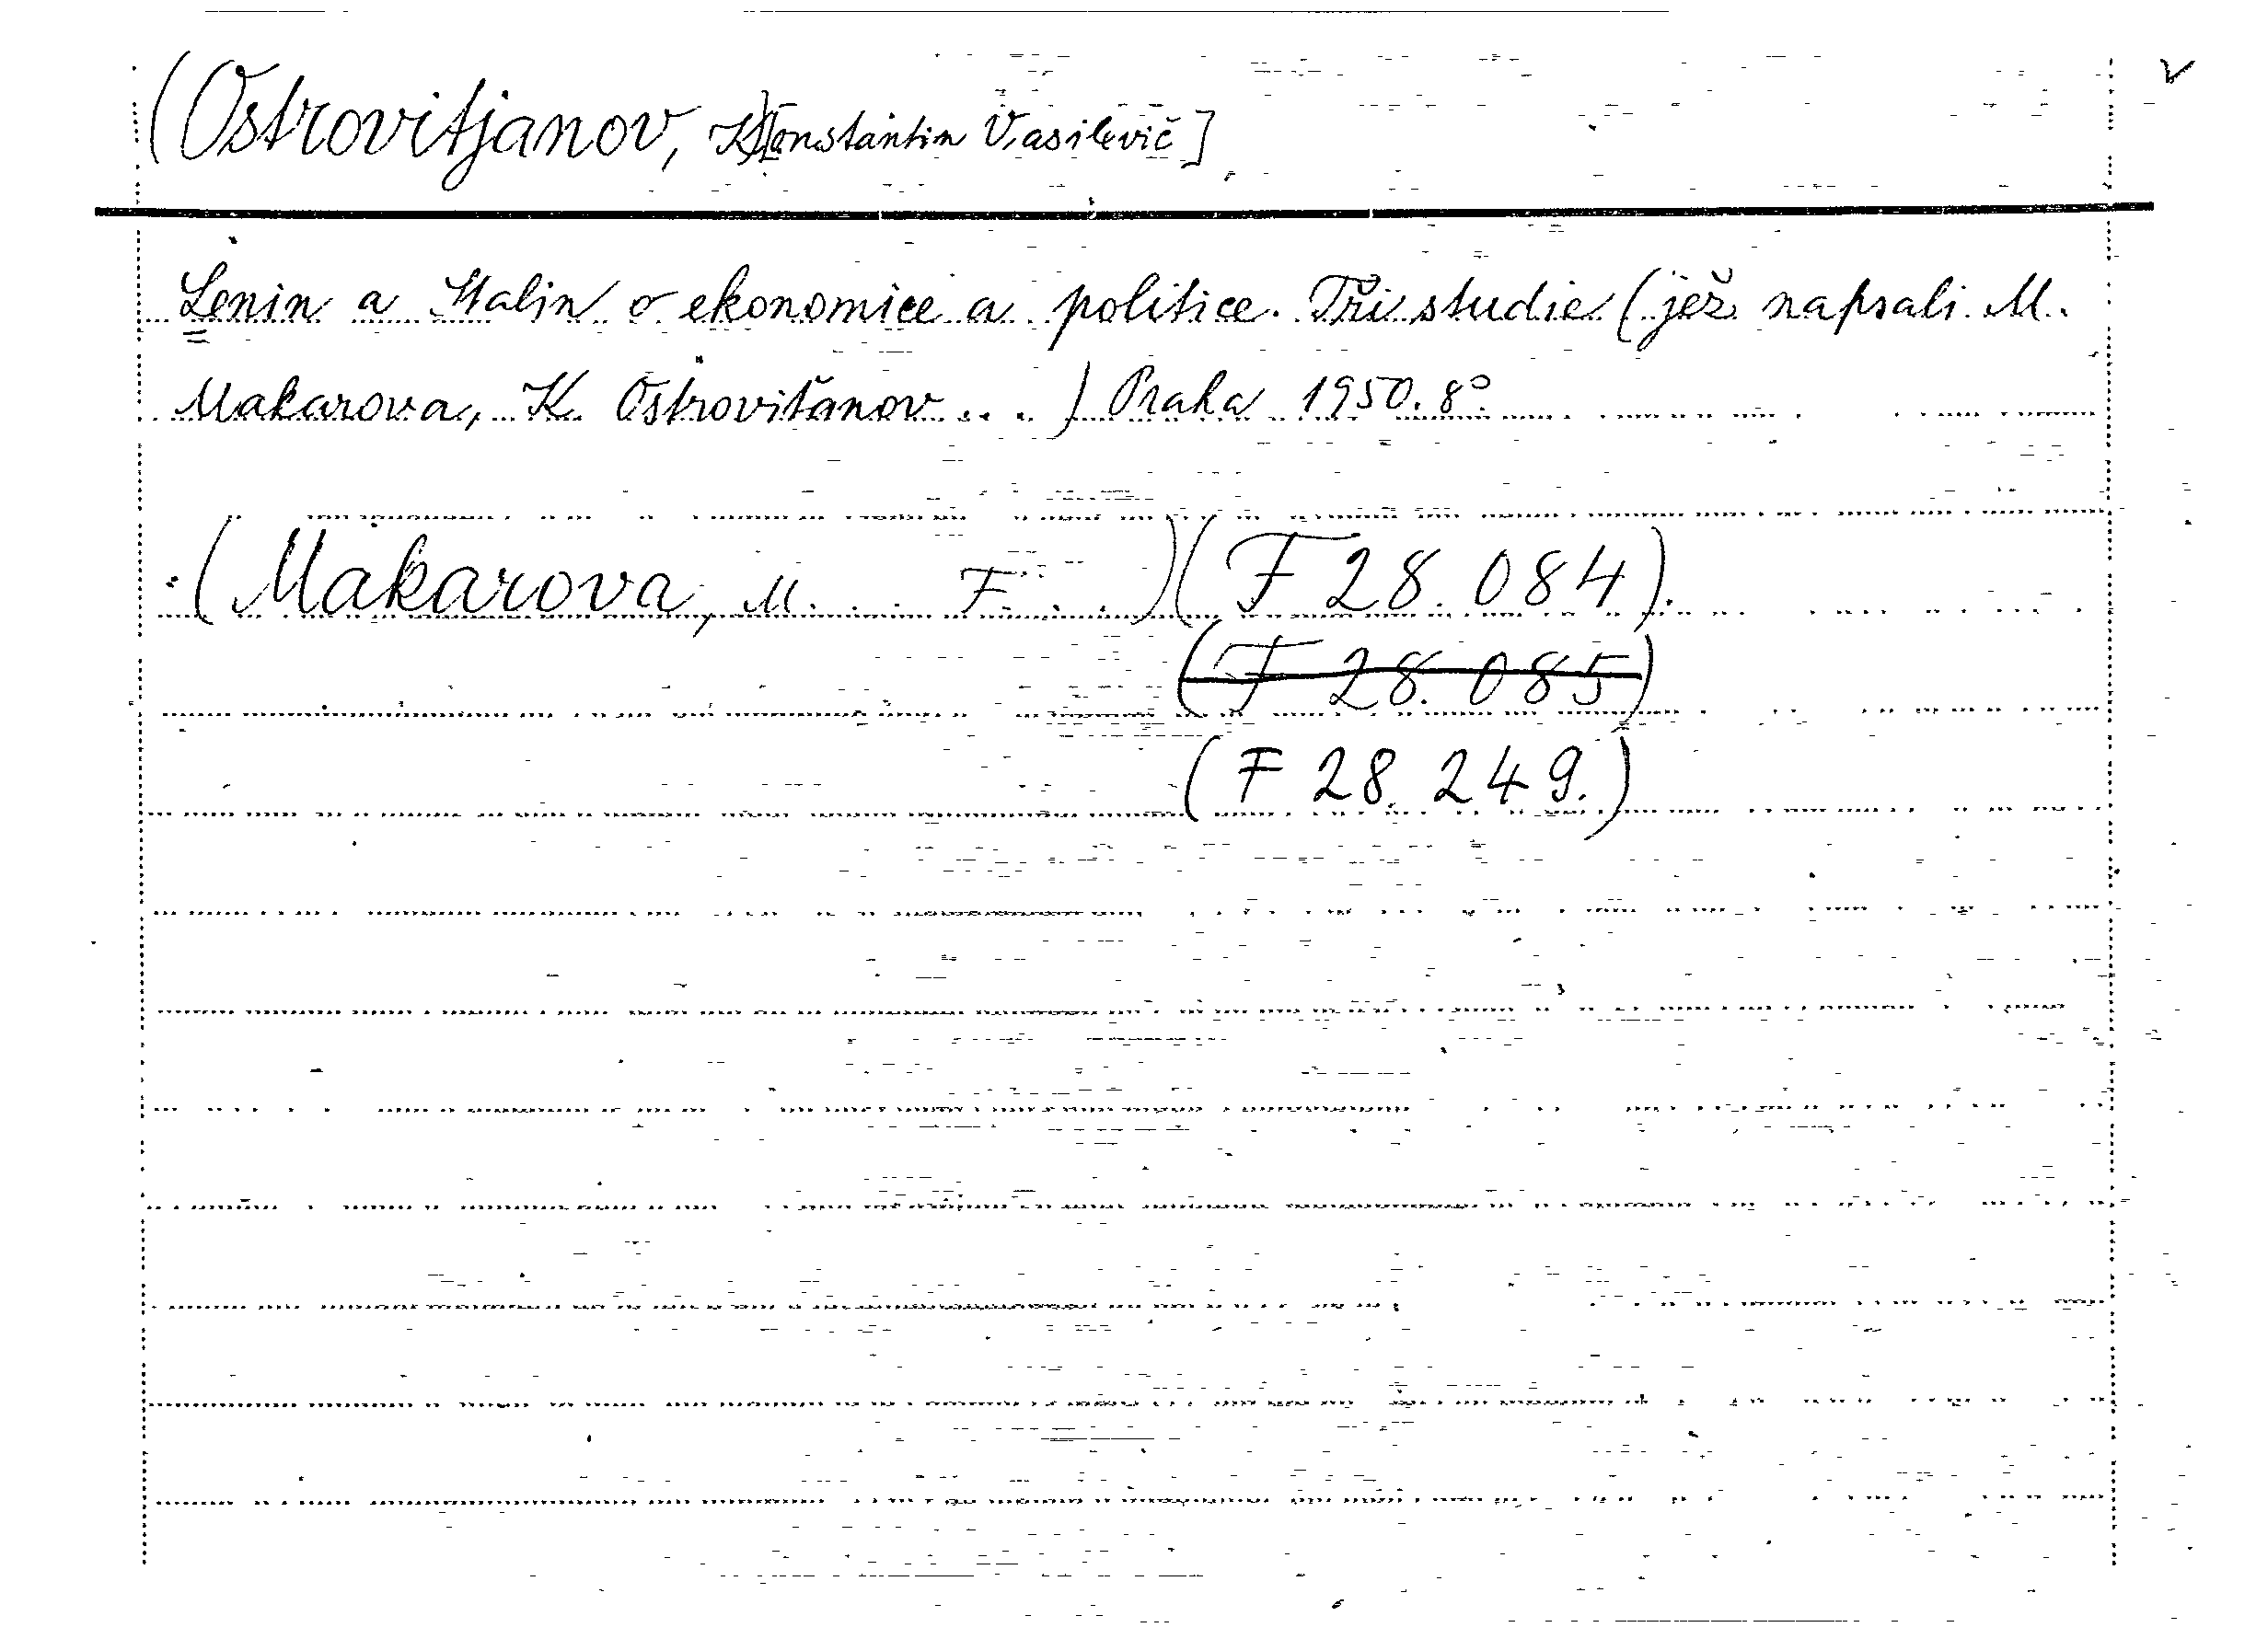 (Ostrovitjanov, K)[onstantin Vasilevič]
Lenin a Stalin o ekonomice a politice. Tři studie (jež napsali M.
Makarova, K. Ostrovitănov...) Praha 1950. 8°
(Makarova, M. . . F. . .) (F 28.084).
(F 28.085)
(F 28.249.)